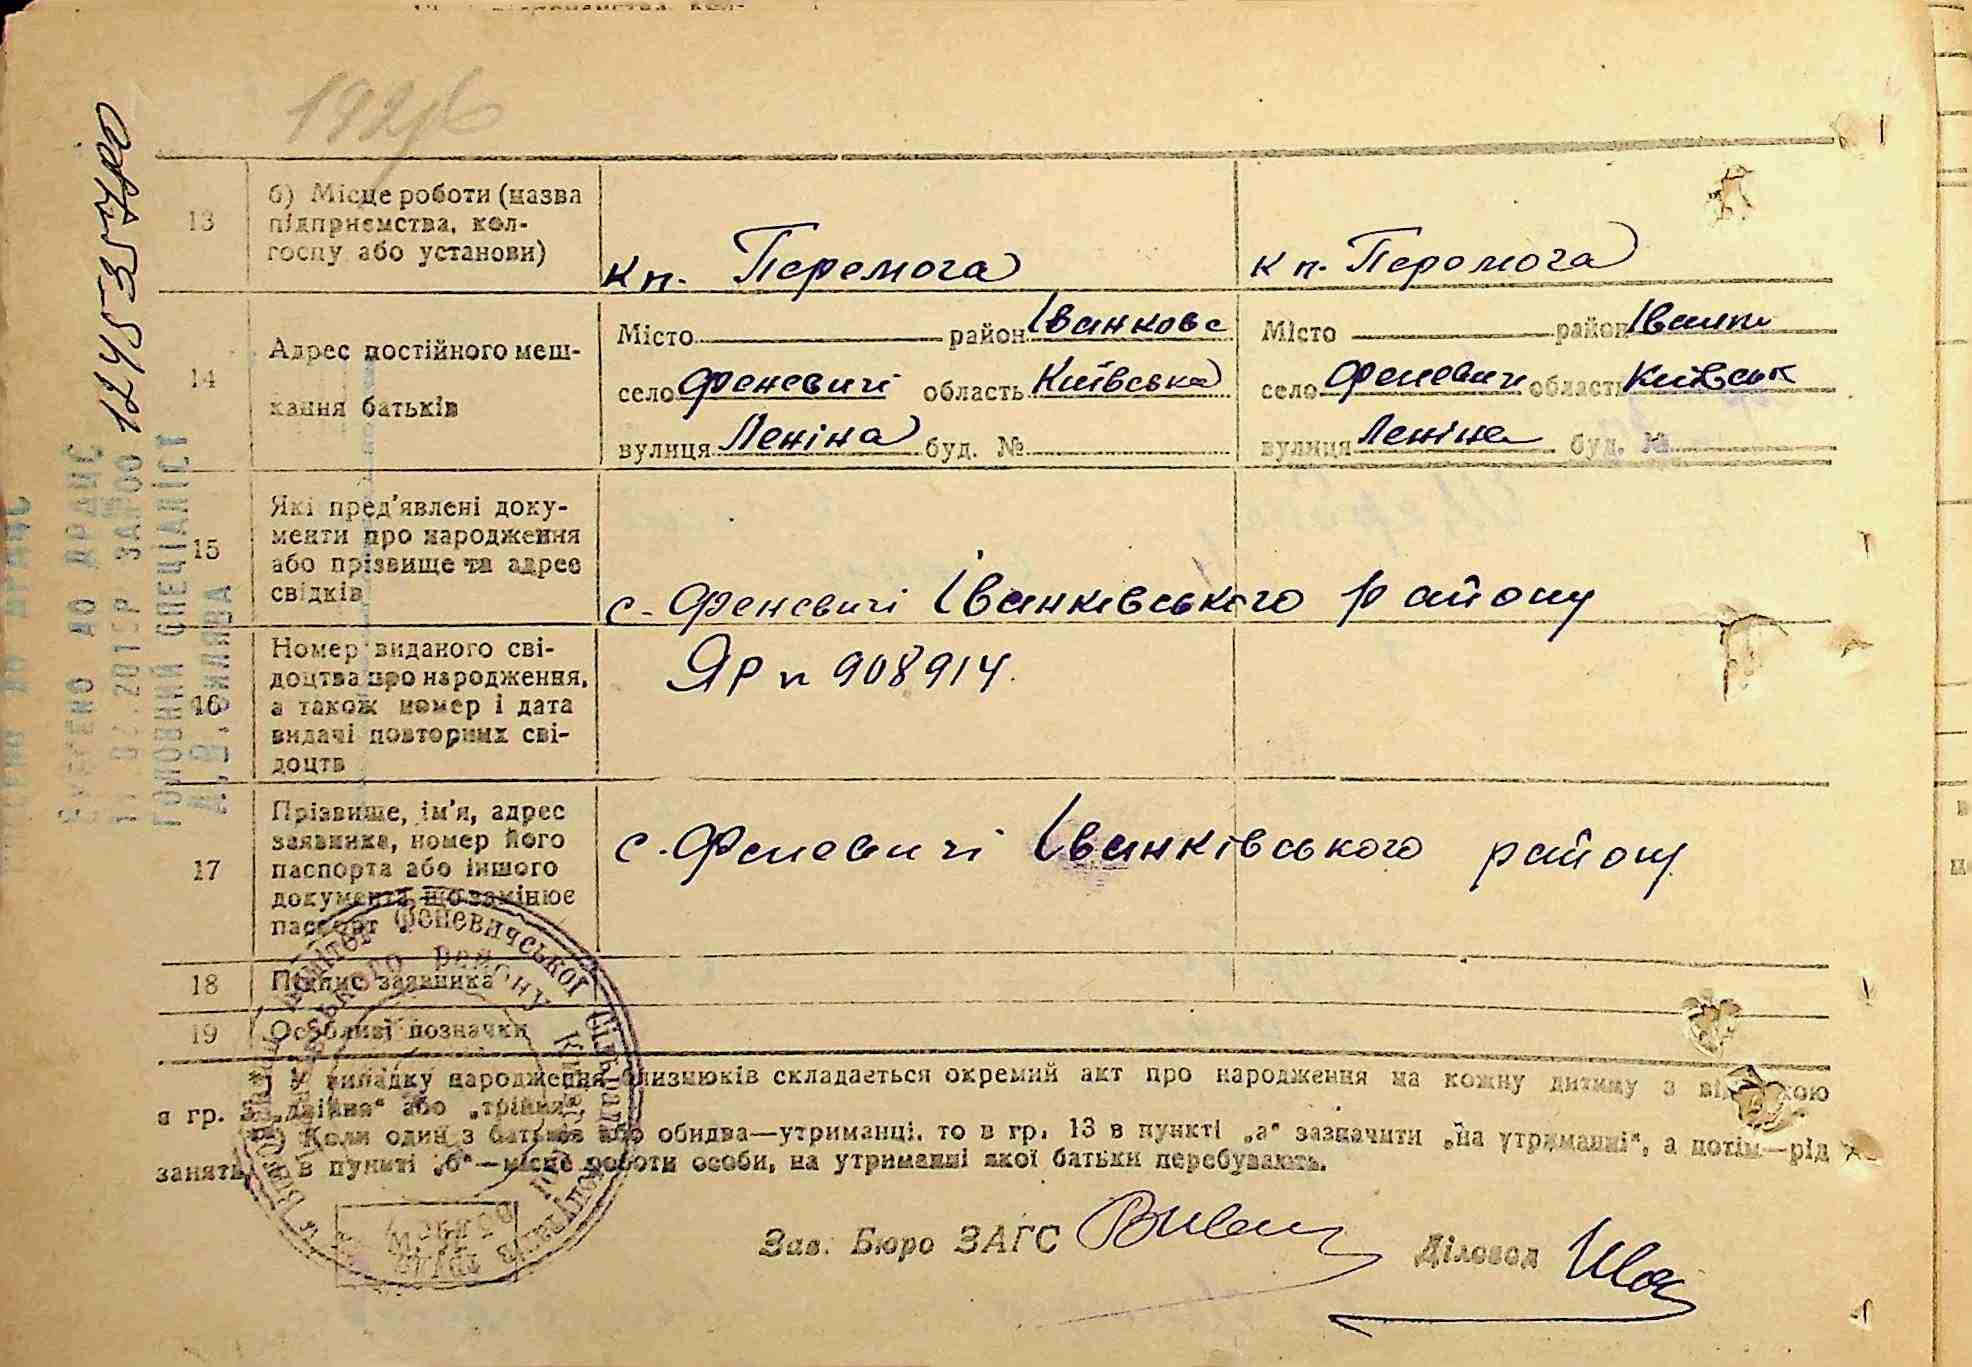 13
б) Місце роботи (назва
підприємства, кол-
госпу або установи)
кп. Перемога
кп. Перемога
14
Адрес постійного меш-
кання батьків
Місто район Іванковс
село Феневичі область Київська
вулиця Леніна буд. №
Місто район Іванк
село Феневичі область Київськ
вулиця Леніна буд. №
15
Які пред'явлені доку-
менти про народження
або прізвище та адрес
свідків
с. Феневичі Іванківського району
16
Номер виданого сві-
доцтва про народження,
а також номер і дата
видачі повторних сві-
доцтв
ЯР п 908914.
17
Прізвище, ім'я, адрес
заявника, номер його
паспорта або іншого
документа, що замінює
паспорт
с. Феневичі Іванківського району
18
Підпис заявника
19
Особливі позначки
випадку народження близнюків складається окремий акт про народження на кожну дитину з
в гр. 3 „двійня“ або „трійня“.
Коли один з батьків або обидва—утриманці, то в гр. 13 в пункті „а“ зазначити „на утриманні“, а потім—рід
занять, в пункті „б“—місце роботи особи, на утриманні якої батьки перебувають.
Зав. Бюро ЗАГС
Діловод
ГОЛОВНИЙ СПЕЦІАЛІСТ
Феневичської сільради
району